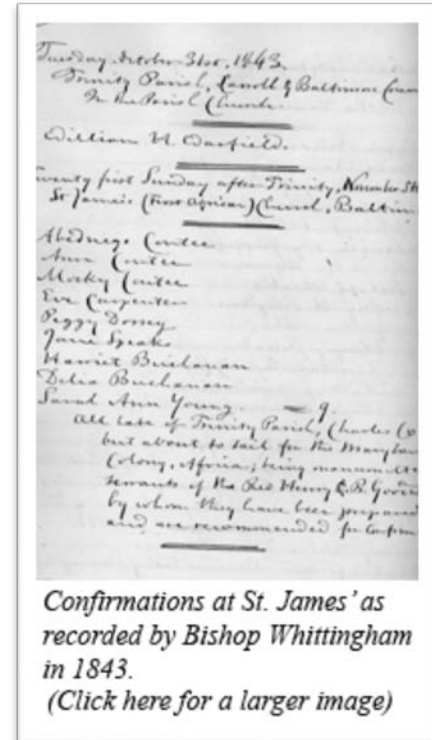 Tuesday, October 31st, 1843.
Trinity Parish, Carroll & Baltimore Coun
In the Parish Church
William H.
Twenty first Sunday after Trinity, November 5th
St James's (First African) Church, Baltim
Abednego Contee
Ann Contee
Mocky Contee
Eve Carpenter
Peggy Dorsey
Jane Speaks
Harriet Buchanan
Delia Buchanan
Sarah Ann Young. — 9.
All late of Trinity Parish, Charles Co
but about to sail for the Maryland
Colony, Africa; being
servants of the Rev Henry B. Good
by whom they have been prepared
and are recommended for Confirm
Confirmations at St. James' as
recorded by Bishop Whittingham
in 1843.
(Click here for a larger image)